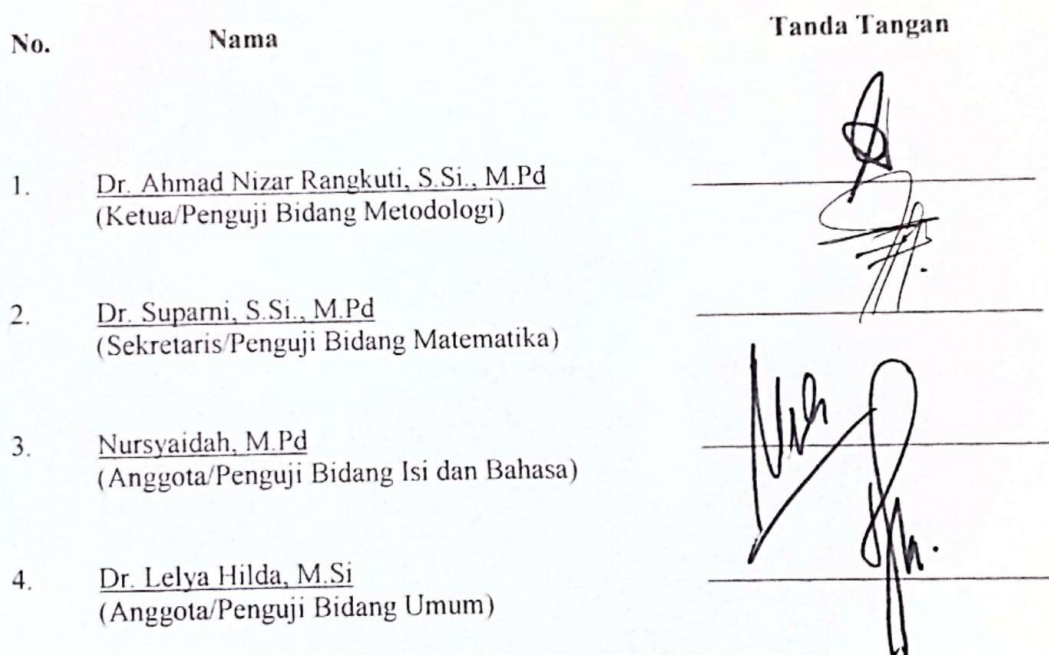 No. Nama Tanda Tangan
1. Dr. Ahmad Nizar Rangkuti, S.Si., M.Pd
(Ketua/Penguji Bidang Metodologi)
2. Dr. Suparni, S.Si., M.Pd
(Sekretaris/Penguji Bidang Matematika)
3. Nursyaidah, M.Pd
(Anggota/Penguji Bidang Isi dan Bahasa)
4. Dr. Lelya Hilda, M.Si
(Anggota/Penguji Bidang Umum)